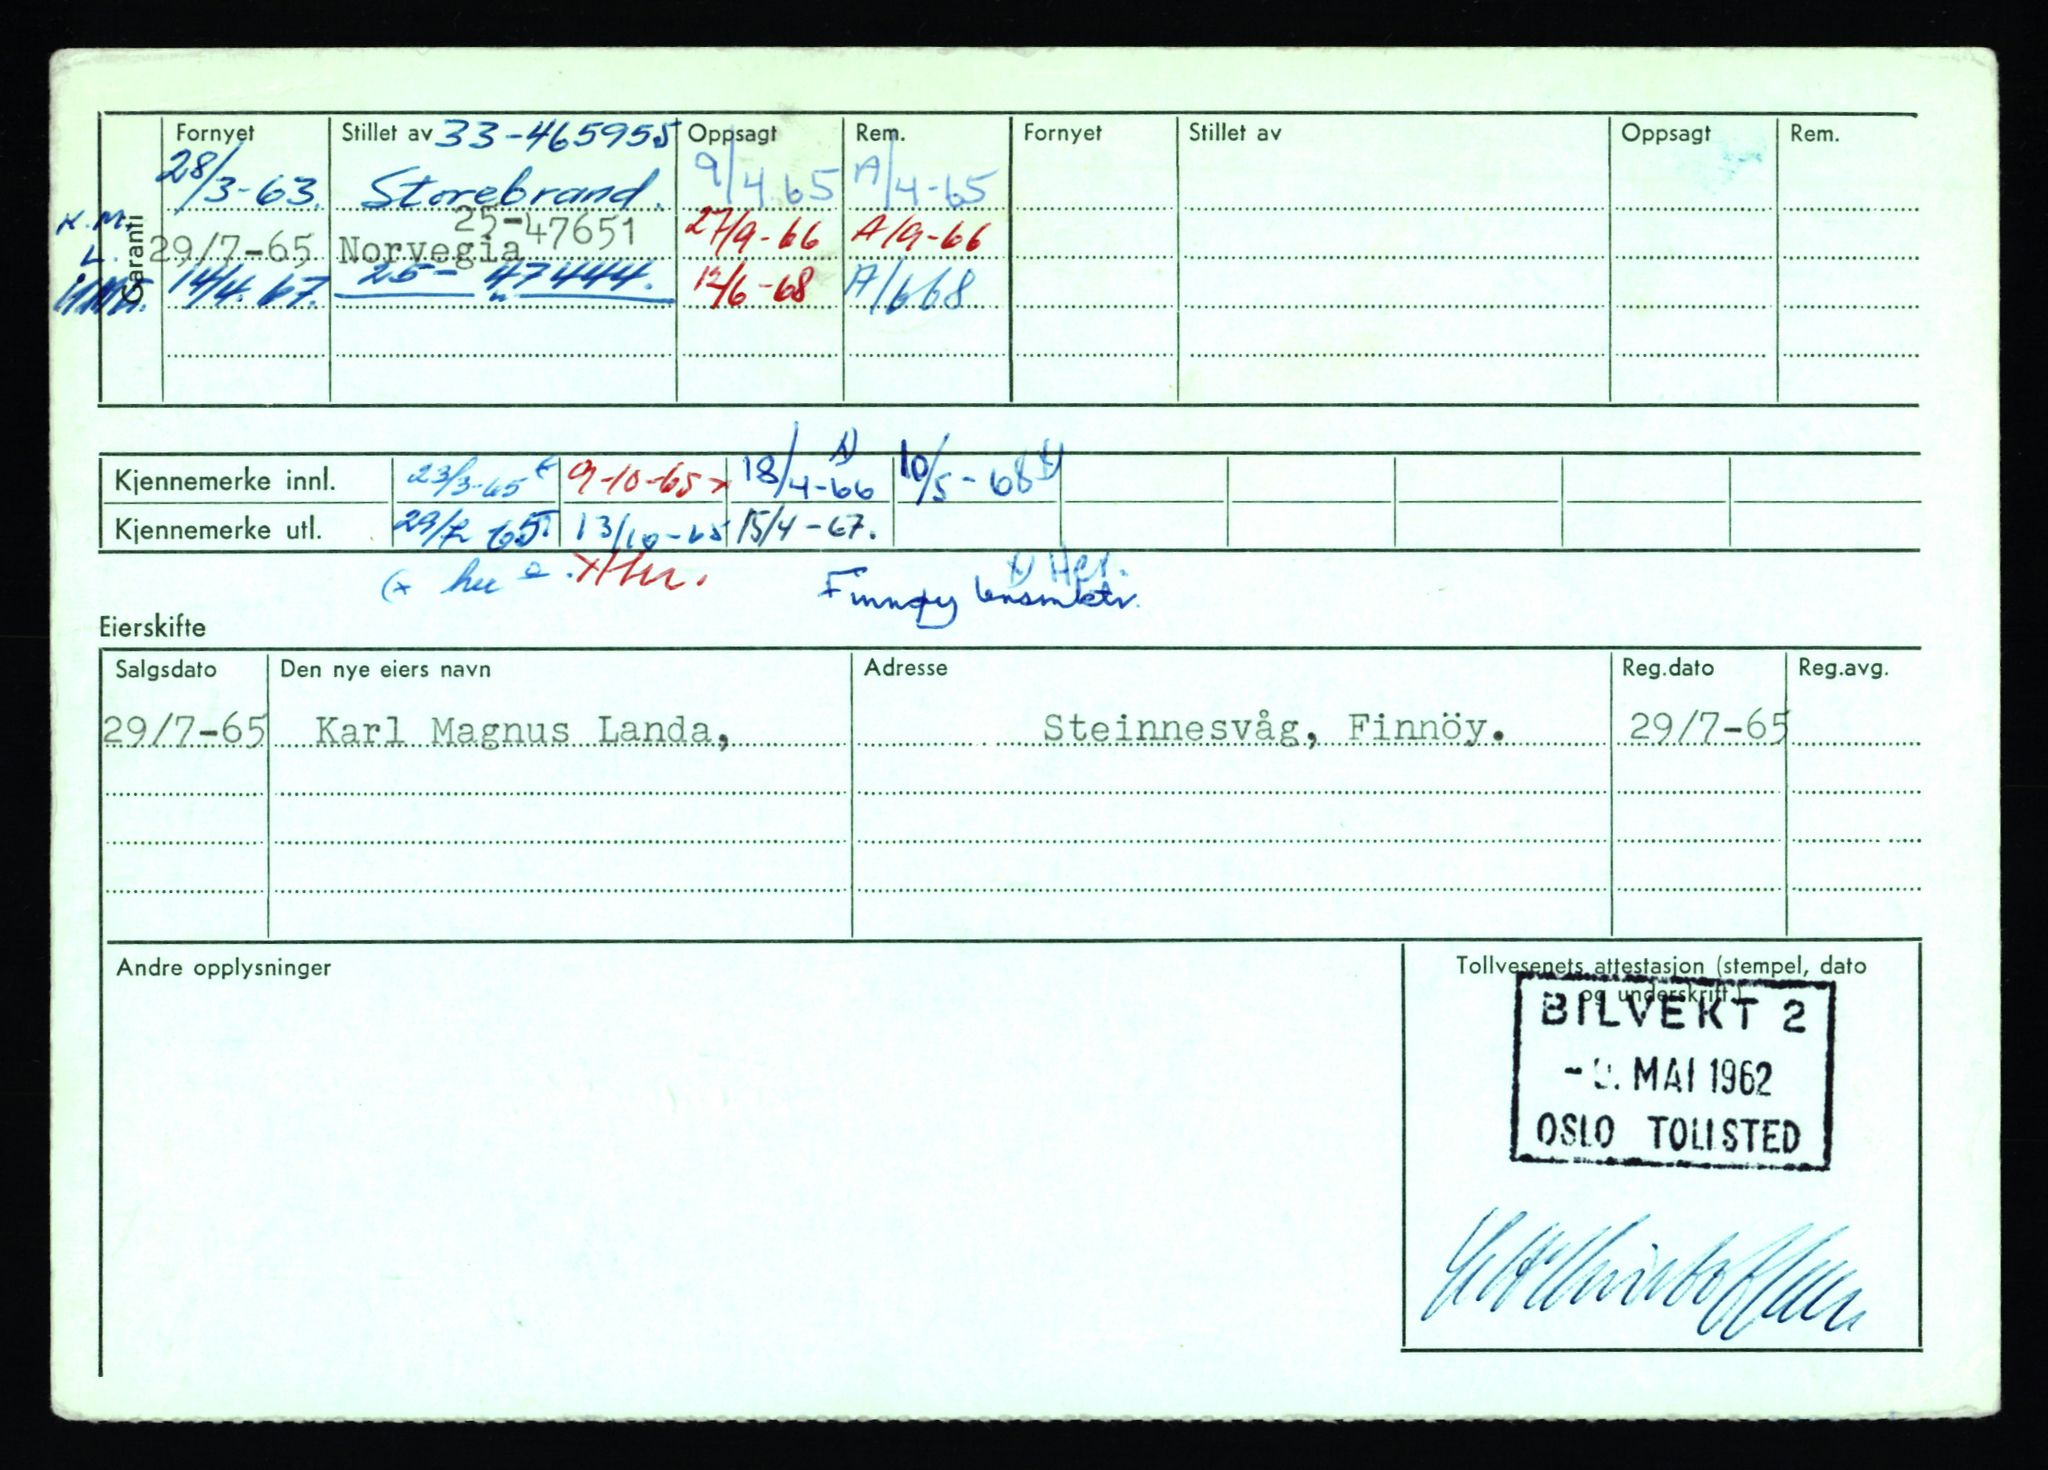 Fornyet Stillet av 33-465955 Oppsagt Rem. Fornyet Stillet av Oppsagt Rem.
28/3-63. Storebrand. 9/4 65 A/4-65
K.M. 25-47651
L. 29/7-65 Norvegia 27/9-66 A/9-66
14/4. 67. 25- 47444. 12/6-68 A/6 68
Garanti
Kjennemerke innl. 23/3-65 9-10-65 x 18/4-66 10/5-68
Kjennemerke utl. 29/7 65 13/10-65 15/4-67.
Finnøy
Eierskifte
Salgsdato Den nye eiers navn Adresse Reg.dato Reg.avg.
29/7-65 Karl Magnus Landa, Steinnesvåg, Finnöy. 29/7-65
Andre opplysninger
Tollvesenets attestasjon (stempel, dato
og underskrift)
BILVEKT 2
MAI 1962
OSLO TOLLSTED